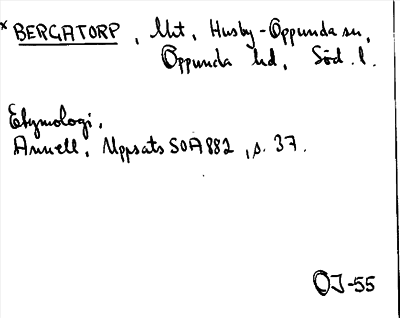 * BERGATORP, Utt, Husby-Oppunda sn,
Oppunda hd, Söd. l.
Etymologi,
Annell, Uppsats SOA 882, s. 37.
OJ-55